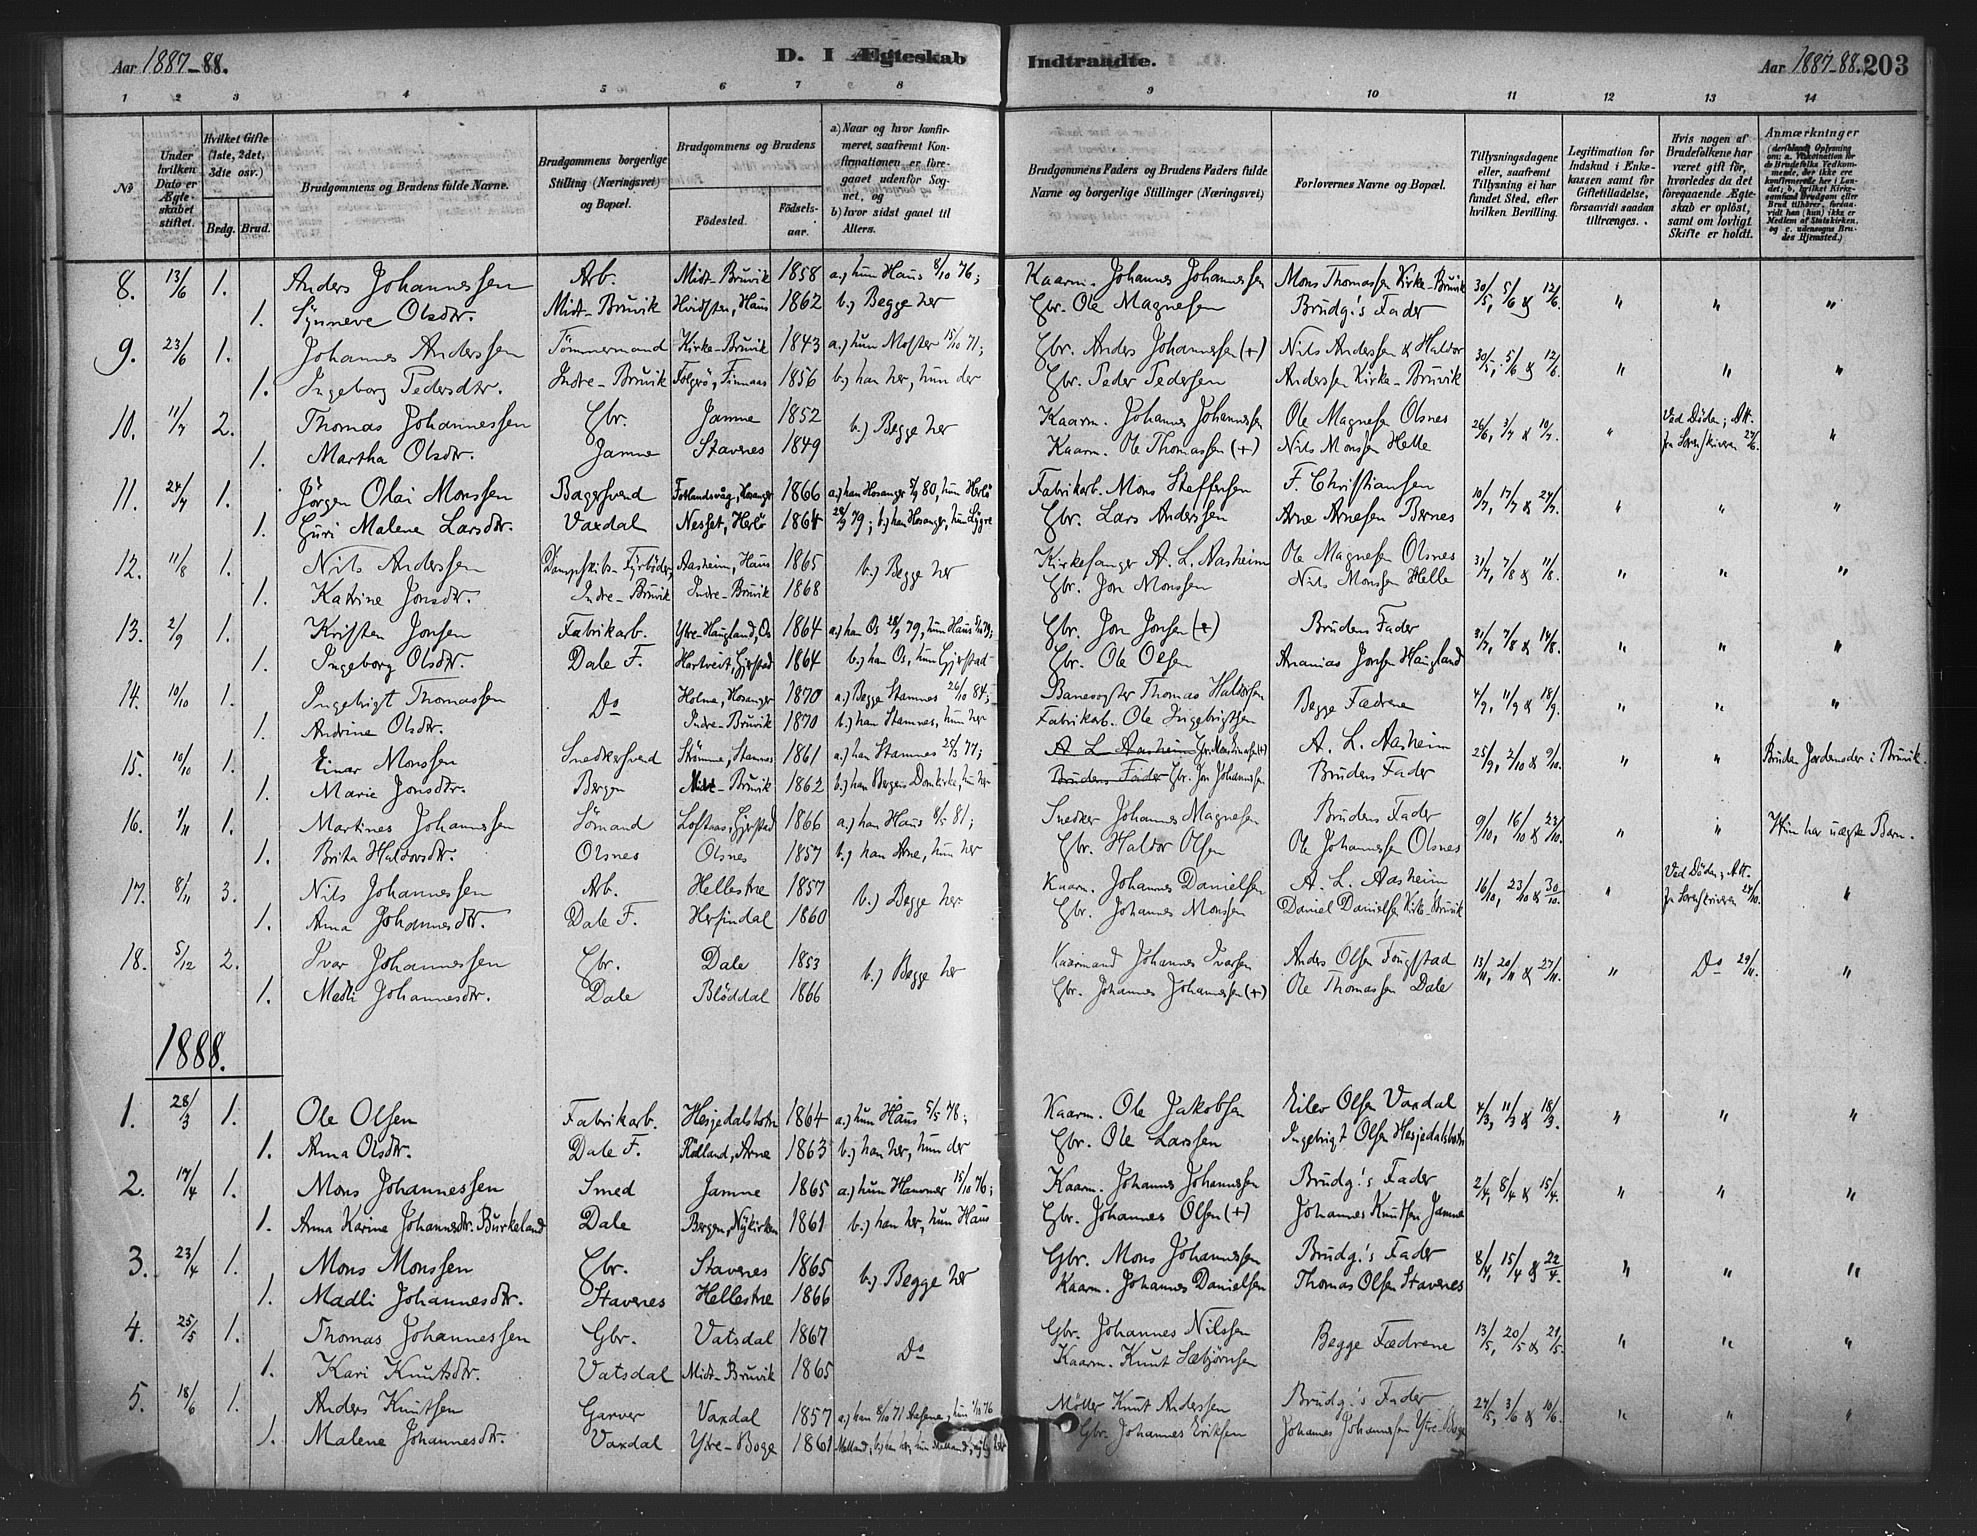 Aar 1887-88. D. I Ægteskab Indtraadte. Aar 1887-88. 203
1 2 3 4 5 6 7 8 9 10 11 12 13 14
No Under hvilken Dato er Ægteskabet stiftet. Hvilket Gifte (1ste, 2det, 3dte osv.) Brdg. Brud. Brudgommens og Brudens fulde Navne. Brudgommens borgerlige Stilling (Næringsvei) og Bopæl. Brudgommens og Brudens Födested. Födselsaar. a) Naar og hvor konfirmeret, saafremt Konfirmationen er foregaaet udenfor Sognet, og b) hvor sidst gaaet til Alters. Brudgommens Faders og Brudens Faders fulde Navne og borgerlige Stillinger (Næringsvei) Forlovernes Navne og Bopæl. Tillysningsdagene eller, saafremt Tillysning ei har fundet Sted, efter hvilken Bevilling. Legitimation for Indskud i Enkekassen samt for Giftetilladelse, forsaavidt saadan tiltrænges. Hvis nogen af Brudefolkene har været gift för, hvorledes da det foregaaende Ægteskab er oplöst, samt om lovligt Skifte er holdt. Anmærkninger
8. 13/6 1. Anders Johannessen Arb. Midt-Bruvik 1858 a.) hun Haus 8/10 76; Kaarm. Johannes Johannessen Mons Thomassen Kirke-Bruvik 30/5, 5/6 & 12/6. " " "
1. Synneve Olsdtr. Midt-Bruvik Hvidsten, Haus 1862 b.) Begge her Gbr. Ole Magnesen Brudg.'s Fader
9. 23/6 1. Johannes Anderssen Tömmermand Kirke-Bruvik 1843 a.) hun Moster 15/10 71; Gbr. Anders Johannessen (+) Nils Anderssen & Haldor 30/5, 5/6 & 12/6. " " "
1. Ingeborg Pedersdtr. Indre-Bruvik Folgrö, Finnaas 1856 b.) han her, hun der Gbr. Peder Pedersen Anderssen Kirke-Bruvik
10. 11/7 2. Thomas Johannessen Gbr. Jamne 1852 b.) Begge her Kaarm. Johannes Johannessen Ole Magnesen Olsnes 26/6, 3/7 & 10/7. " Ved Döden; Att. "
1. Martha Olsdtr. Jamne Stavenes 1849 Kaarm. Ole Thomassen (+) Nils Monssen Helle fra Sorenskriveren 27/6.
11. 24/7 1. Jörgen Olai Monssen Bagersvend Fotlandsvåg, Hosanger 1866 a.) han Hosanger 80, hun Herlö Fabrikarb. Mons Steffensen F. Christiansen 10/7, 17/7 & 24/7. " " "
1. Guri Malene Larsdtr. Vaxdal Nesset, Herlö 1864 79; b.) han Hosanger, hun Lygre Gbr. Lars Anderssen Arne Arnesen Bernes
12. 11/8 1. Nils Anderssen Dampskibs-Fyrböder, Aasheim, Haus 1865 b.) Begge her Kirkesanger A. L. Aasheim Ole Magnesen Olsnes 31/7, 7/8 & 11/8. " " "
1. Katrine Jonsdtr. Indre-Bruvik Indre-Bruvik 1868 Gbr. Jon Monssen Nils Monssen Helle
13. 2/9 1. Kristen Jonsen Fabrikarb. Ytre-Haugland, Os 1864 a.) han Os 28/9 79, hun Haus 79; Gbr. Jon Jonsen (+) Brudens Fader 31/7, 7/8 & 14/8. " " "
1. Ingeborg Olsdtr. Dale F. Hartveit, Gjerstad 1864 b.) han Os, hun Gjerstad Gbr. Ole Olsen Ananias Jonsen Haugland
14. 10/10 1. Ingebrigt Thomassen Do Holme, Hosanger 1870 a.) Begge Stamnes 26/10 84; Banevogter Thomas Haldorsen Begge Fædrene 4/9, 11/9 & 18/9. " " "
1. Andrine Olsdtr. Indre-Bruvik 1870 b.) han Stamnes, hun her Fabrikarb. Ole Ingebrigtsen
15. 10/10 1. Einar Monssen Snedkersvend Strömme, Stamnes 1861 a.) han Stamnes 25/3 77; A. L. Aasheim Gbr. Mons Einarsen (+) A. L. Aasheim 25/9, 2/10 & 9/10. " " Bruden Jordemoder i Bruvik.
1. Marie Jonsdtr. Bergen Midt-Bruvik 1862 b.) han Bergens Domkirke, hun her Brudens Fader Gbr. Jon Johannessen Brudens Fader
16. 1/11 1. Martines Johannessen Sömand Loftaas, Gjerstad 1866 a.) han Haus 81; Snedker Johannes Magnesen Brudens Fader 9/10, 16/10 & 23/10. " " Hun har uægte Barn.
1. Brita Haldorsdtr. Olsnes Olsnes 1857 b.) han Arne, hun her Gbr. Haldor Olsen Ole Johannessen Olsnes
17. 8/11 3. Nils Johannessen Arb. Hellestre 1857 b.) Begge her Kaarm. Johannes Danielsen A. L. Aasheim 16/10, 23/10 & 30/10. " Ved Döden; Att. "
1. Anna Johannesdtr. Dale F. Herfindal 1860 Gbr. Johannes Monssen Daniel Danielsen Kirke-Bruvik fra Sorenskriveren 27/10.
18. 5/12 2. Ivar Johannessen Gbr. Dale 1853 b.) Begge her Kaarmand Johannes Ivarsen Anders Olsen Fougstad 13/11, 20/11 & 27/11. " Do 29/11. "
1. Madli Johannesdtr. Dale Blöddal 1866 Gbr. Johannes Johannessen (+) Ole Thomassen Dale
1888.
1. 28/3 1. Ole Olsen Fabrikarb. Hesjedalsbotn 1864 a.) hun Haus 5/5 78; Kaarm. Ole Jakobsen Eilev Olsen Vaxdal 4/3, 11/3 & 18/3. " " "
1. Anna Olsdtr. Dale F. Rödland, Arne 1863 b.) han her, hun der Gbr. Ole Larssen Ingebrigt Olsen Hesjedalsbotn
2. 17/4 1. Mons Johannessen Smed Jamne 1865 a.) hun Hammer 15/10 76; Kaarm. Johannes Johannessen Brudg.'s Fader 2/4, 8/4 & 15/4. " " "
1. Anna Karine Johannesdtr. Burkeland Dale Bergen, Nykirken 1861 b.) han her, hun Haus Gbr. Johannes Olsen (+) Johannes Knutsen Jamne
3. 23/4 1. Mons Monssen Gbr. Stavenes 1865 b.) Begge her Gbr. Mons Johannessen Brudg.'s Fader 8/4, 15/4 & 22/4. " " "
1. Madli Johannesdtr. Stavenes Hellestre 1866 Kaarm. Johannes Danielsen Thomas Olsen Stavenes
4. 25/5 1. Thomas Johannessen Gbr. Vatsdal 1867 Do Gbr. Johannes Nilssen Begge Fædrene 13/5, 20/5 & 21/5. " " "
1. Kari Knutsdtr. Vatsdal Midt-Bruvik 1865 Kaarm. Knut Sæbjörnsen
5. 18/6 1. Anders Knutsen Garver Vaxdal 1857 a.) han 8/10 71 Aasene, hun 76 Möller Knut Anderssen Brudg.'s Fader 27/5, 3/6 & 10/6. " " "
1. Malene Johannesdtr. Vaxdal Ytre-Boge 1861 b.) han her, hun Gbr. Johannes Eriksen Johannes Johannessen Ytre-Boge